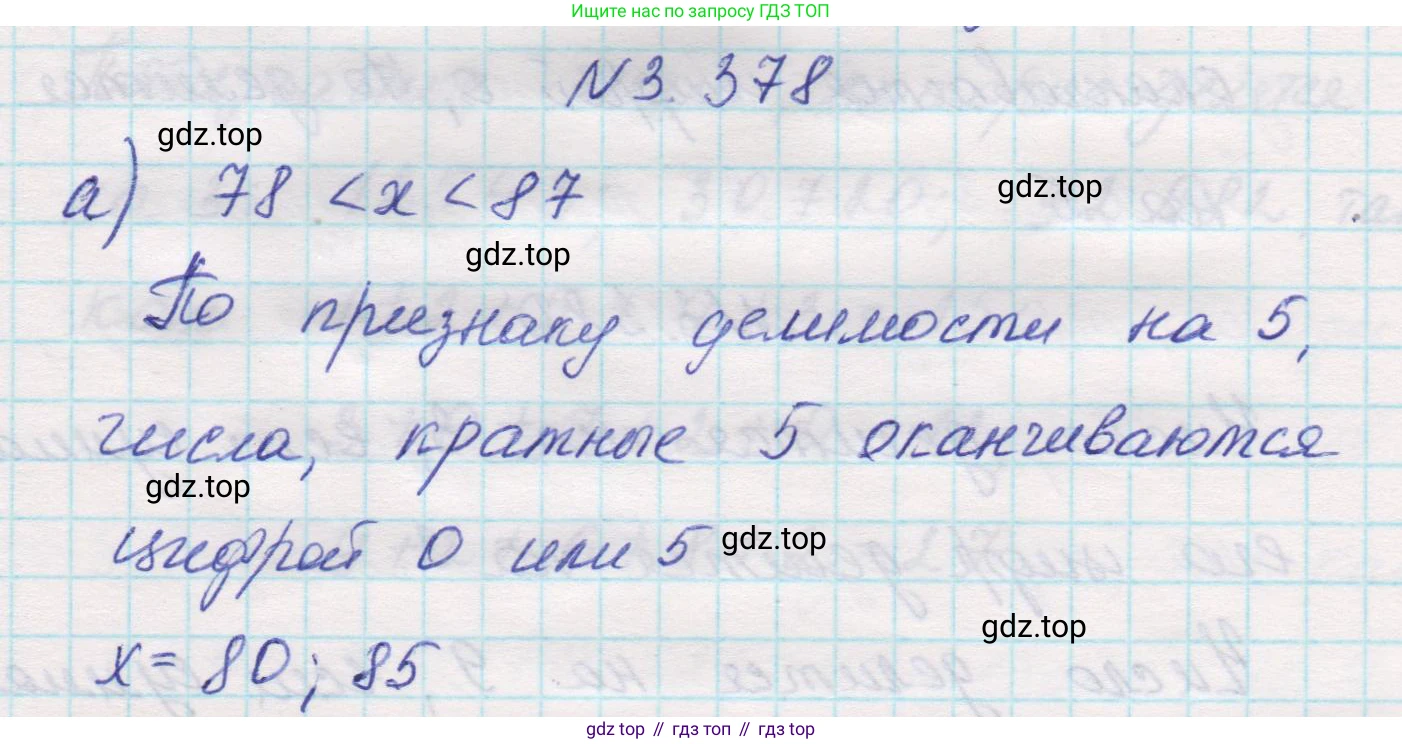 Ищите нас по запросу ГДЗ ТОП
N 3. 378
gdz.top
а) 78 < x < 87
gdz.top
gdz.top
По признаку делимости на 5,
числа, кратные 5 оканчиваются
gdz.top
цифрой 0 или 5
gdz.top
gdz.top
x = 80; 85
gdz top // гдз топ // gdz top